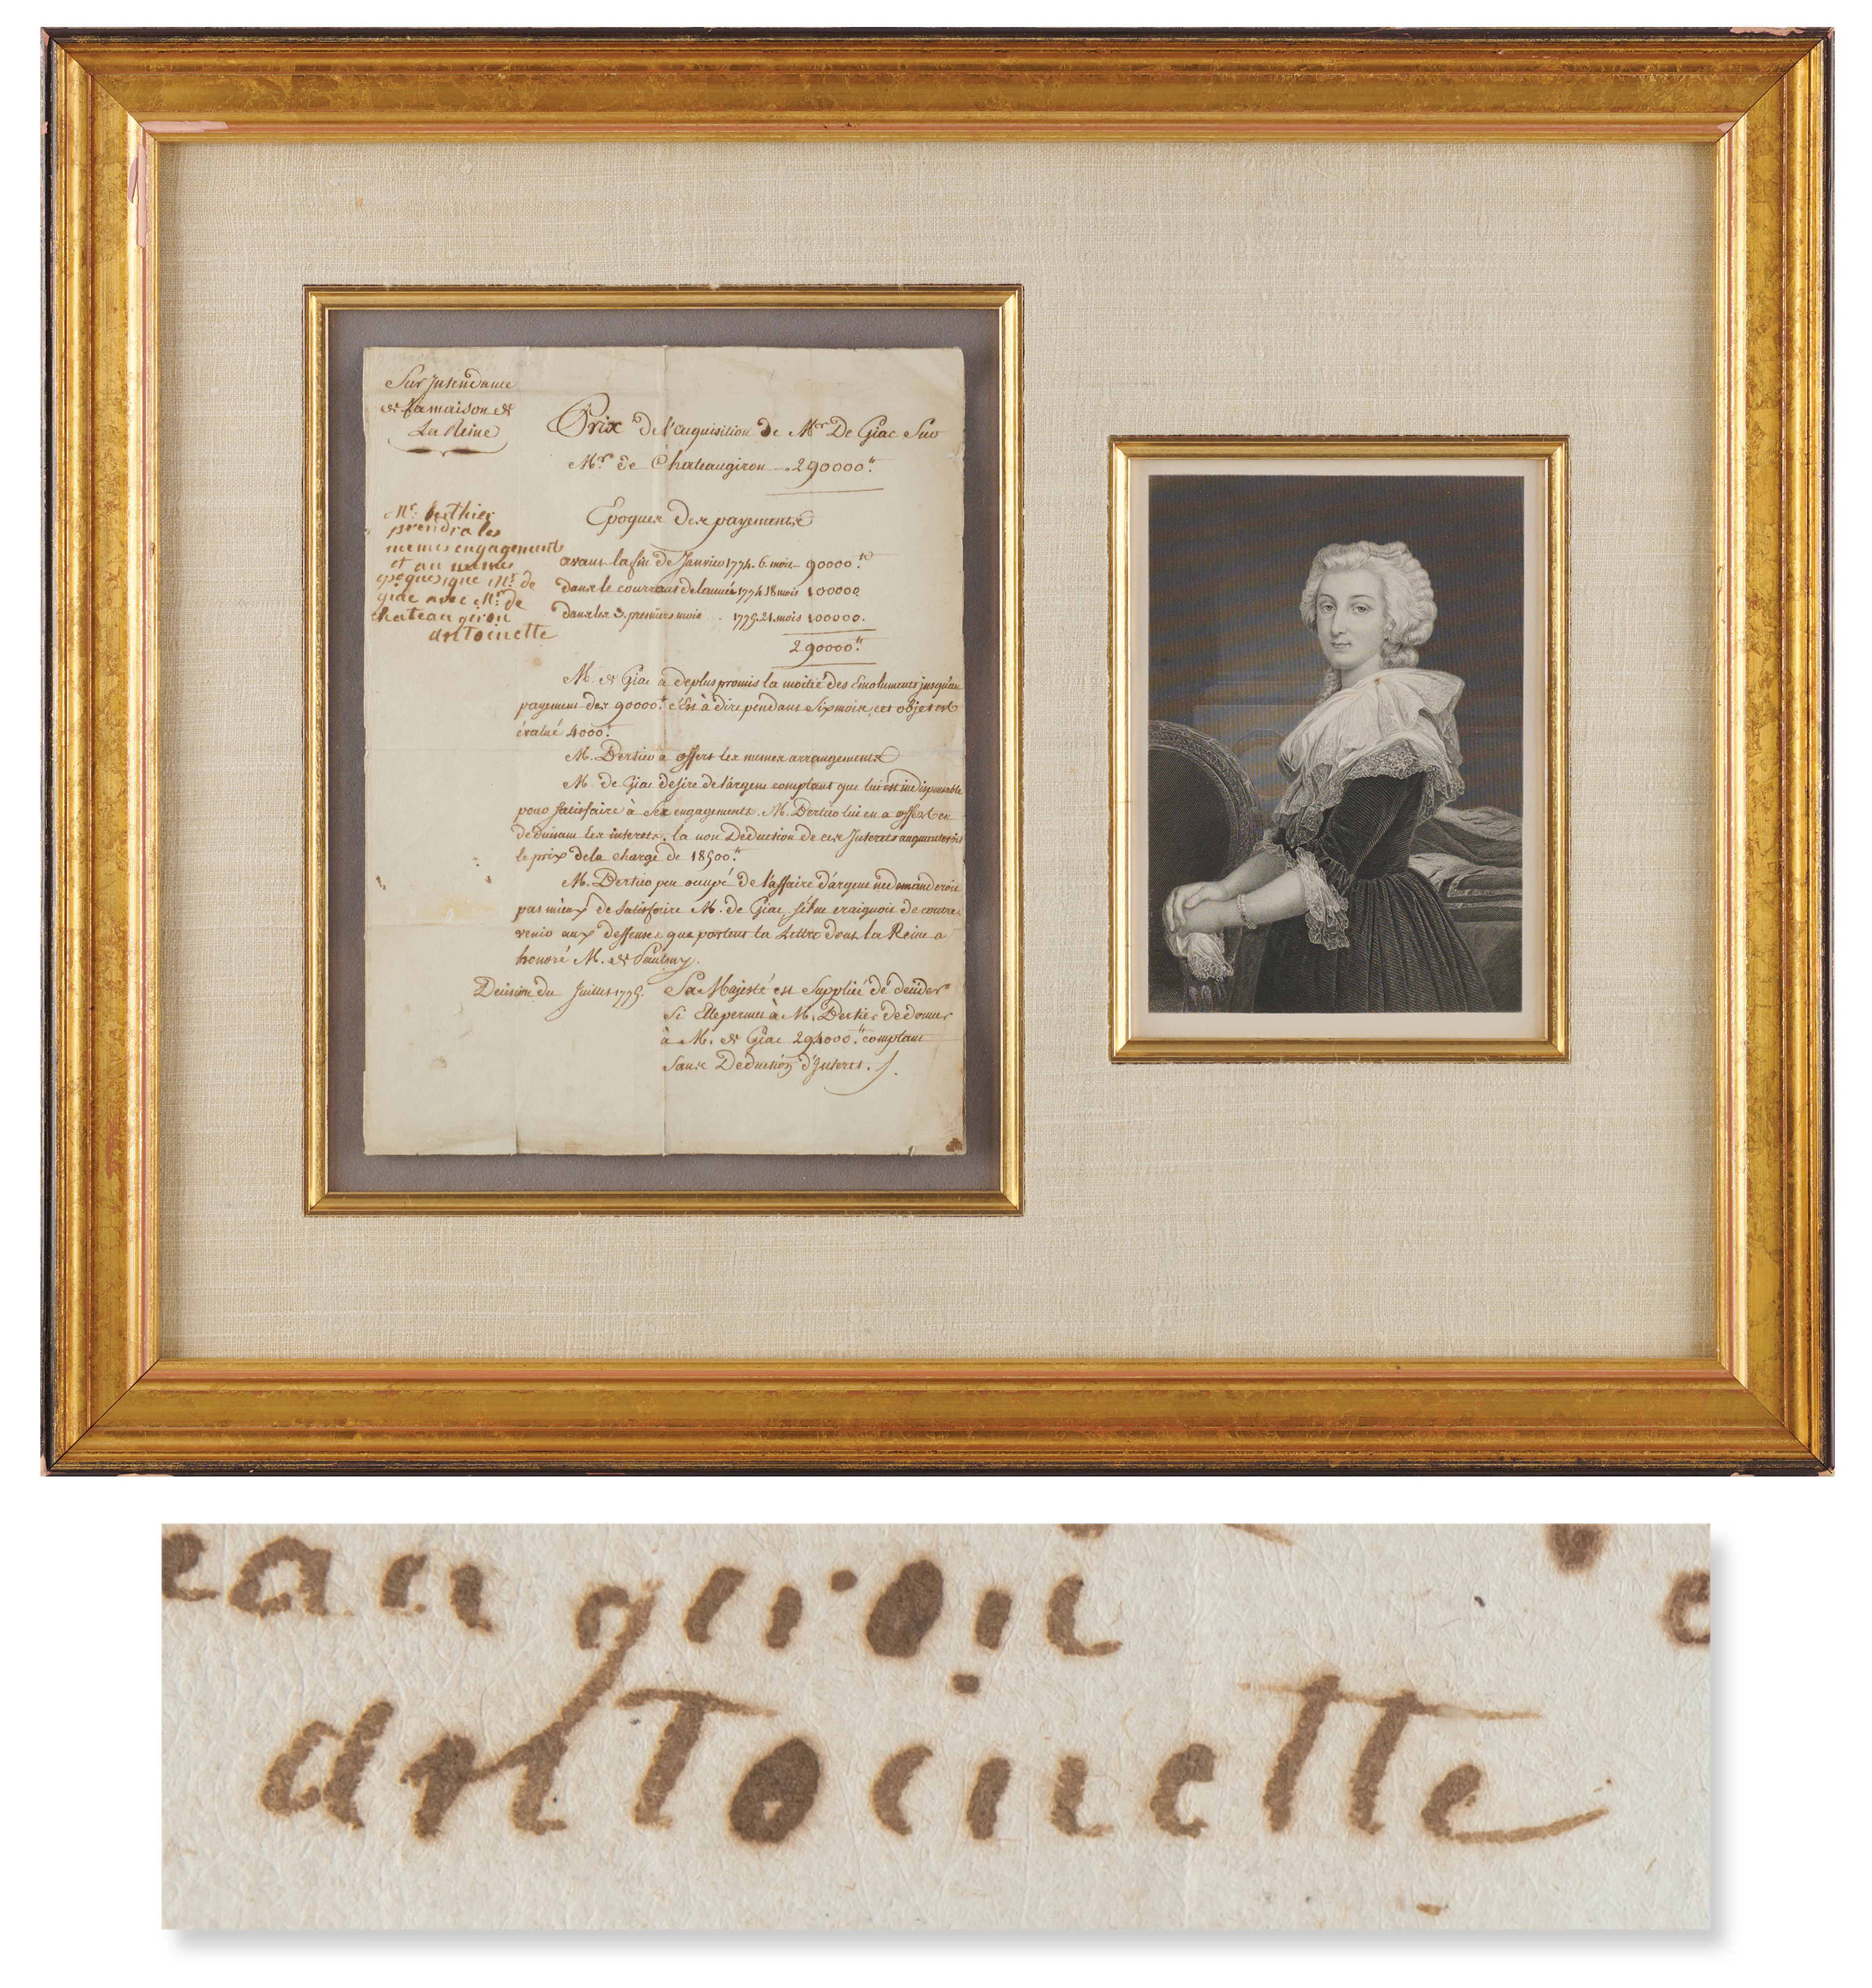 Sur Intendance
de La maison de
La Reine
Prix de l'acquisition de Mr. De Giac Sur
Mr. de Chateaugiron 290000.tt
Mr. berthier
prendra les
memes engagements
et au memes
epoques que Mr. de
giac avec Mr. de
chateau giron
antoinette
Epoques des payements
avant la fin de Janvier 1774. 6. mois 90000.tt
dans le courrant de lannée 1774 18 mois 100000
dans les 3. premiers mois .. 1775. 21. mois 100000.
290000.tt
M. de Giac a deplus promis la moitié des Emoluments jusqu'au
payement des 90000.tt c'est à dire pendant Six mois, cet objet est
évalué 4000.tt
M. Bertier a offert les memes arrangements
M. de Giac desire de l'argent comptant qui lui est indispensable
pour satisfaire à ses engagements. M. Bertier lui en a offert en
deduisant les interets. la non Deduction de ces Interets augmenteroit
le prix de la charge de 18500.tt
M. Bertier peu occupé de l'affaire d'argent ne demanderoit
pas mieux de satisfaire M. de Giac s'il ne craignoit de contre
venir aux deffenses que portent la Lettre dont la Reine a
honoré M. de Paulmy.
Decision du Juillet 1775. Sa Majesté est Suppliée de decider
Si Elle permet à M. Bertier de donner
à M. de Giac 294000.tt comptant
Sans Deduction d'Interet.
eau giron
antoinette